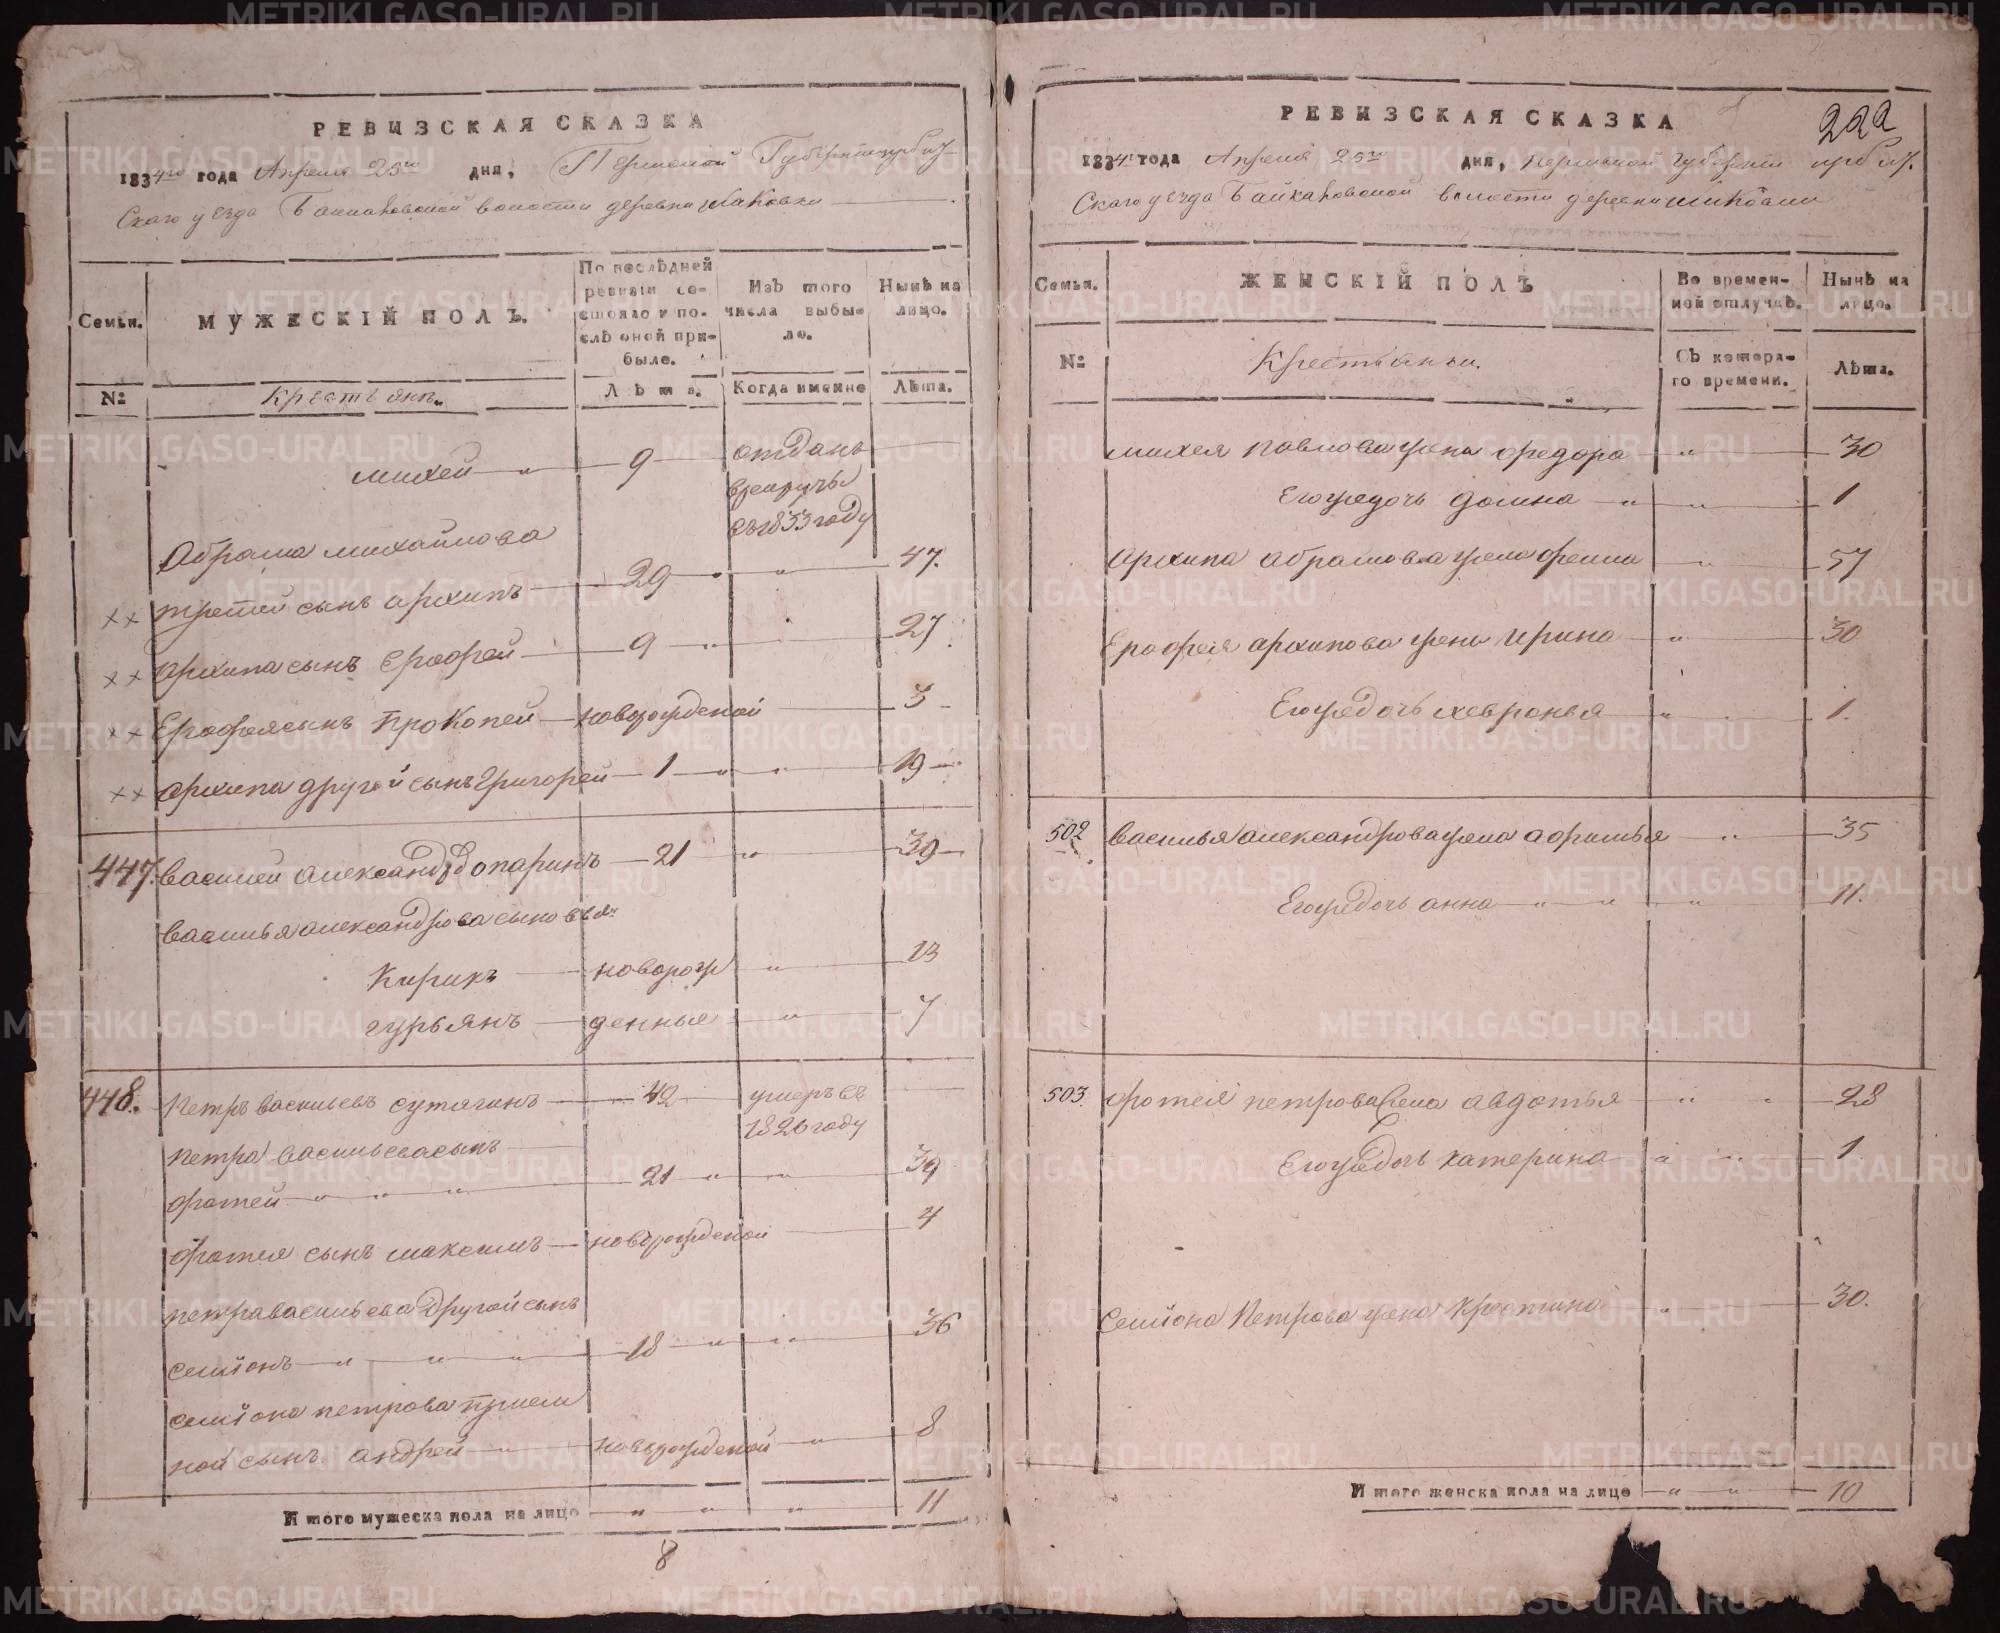 РЕВИЗСКАЯ СКАЗКА
1834го года Апреля 25го дня, Пермской Губернии ирбит-
Скаго уезда Байкаловской волости деревни
Семьи. МУЖЕСКІЙ ПОЛЪ.
По послѣдней ревизіи состояло и послѣ оной прибыло.
Изъ того числа выбыло.
Нынѣ на лицо.
№ Крестьяне. Лѣта. Когда именно Лѣта.
михей 9 отданъ
врекруты
въ 1833 году
Абрама михайлова
третей сынъ архипъ 29 47.
архипа сынъ Ерофей 9 27
Ерофея сынъ Прокопей новорожденой 3
архипа другой сынъ Григорей 1 19
447. василей александр опаринъ 21 39
василья александрова сыновья
Кирикъ новорож 13
гурьянъ денные 7
448. Петръ васильевъ сутягинъ 42 умеръ въ
1826 году
петра васильева сынъ
фотей 21 39
фотея сынъ максимъ новорожденой 4
петра васильева другой сынъ
семіонъ 18 36
семіона петрова прием
ной сынъ андрей новорожденой 8
Итого мужеска пола на лицо 11
8
РЕВИЗСКАЯ СКАЗКА
222
1834 года Апреля 25го дня, пермской губернии ирбит.
Скаго уезда Байкаловской волости деревни
Семьи. ЖЕНСКІЙ ПОЛЪ
Во временной отлучкѣ.
Нынѣ на лицо.
№ Крестьянки. Съ котораго времени. Лѣта.
михея павлова жена федора 30
Егожедочь домна 1
Архипа абрамова жена фекла 57
Ерофея архипова жена ирина 30
Егожедочь хевронья 1.
502 василья александрова жена афимья 35
Егожедочь анна 11.
503. фотея петрова жена авдотья 28
Егожедочь катерина 1
Семіона Петрова жена крестина 30.
Итого женска пола на лицо 10
METRIKI.GASO-URAL.RU